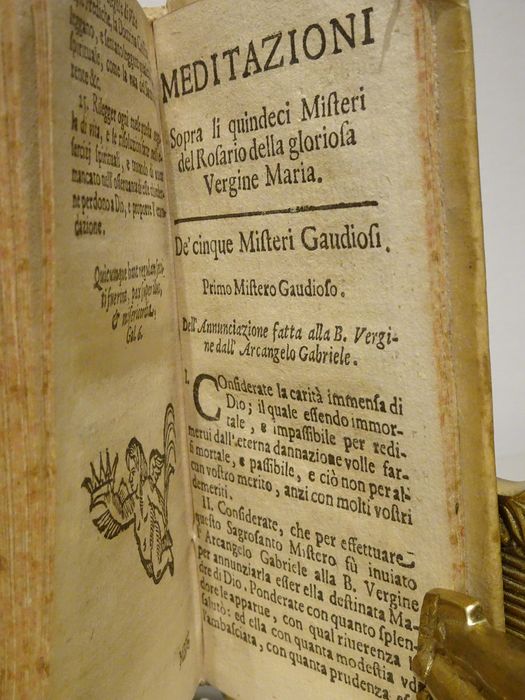 15. Rilegger ogni
di vita, e le
cizj spirituali, e
mancato nell'osservanza
ne perdono a Dio, e proporre l'
cazione.
Quicumque hanc
fuerint, pax super
& misericordia.
Gal. 6.
MEDITAZIONI
Sopra li quindeci Misteri
del Rosario della gloriosa
Vergine Maria.
De' cinque Misteri Gaudiosi.
Primo Mistero Gaudioso.
Dell'Annunciazione fatta alla B. Vergi-
ne dall'Arcangelo Gabriele.
I. COnsiderate la carità immensa di
Dio; il quale essendo immor-
tale, e impassibile per redi-
mervi dall'eterna dannazione volle far-
si mortale, e passibile, e ciò non per al-
cun vostro merito, anzi con molti vostri
demeriti.
II. Considerate, che per effettuare
questo Sagrosanto Mistero fù inviato
l'Arcangelo Gabriele alla B. Vergine
per annunziarla esser ella destinata Ma-
dre di Dio. Ponderate con quanto splen-
dore le apparue, con qual riverenza l
salutò: ed ella con quanta modestia vdì
l'ambasciata, con quanta prudenza